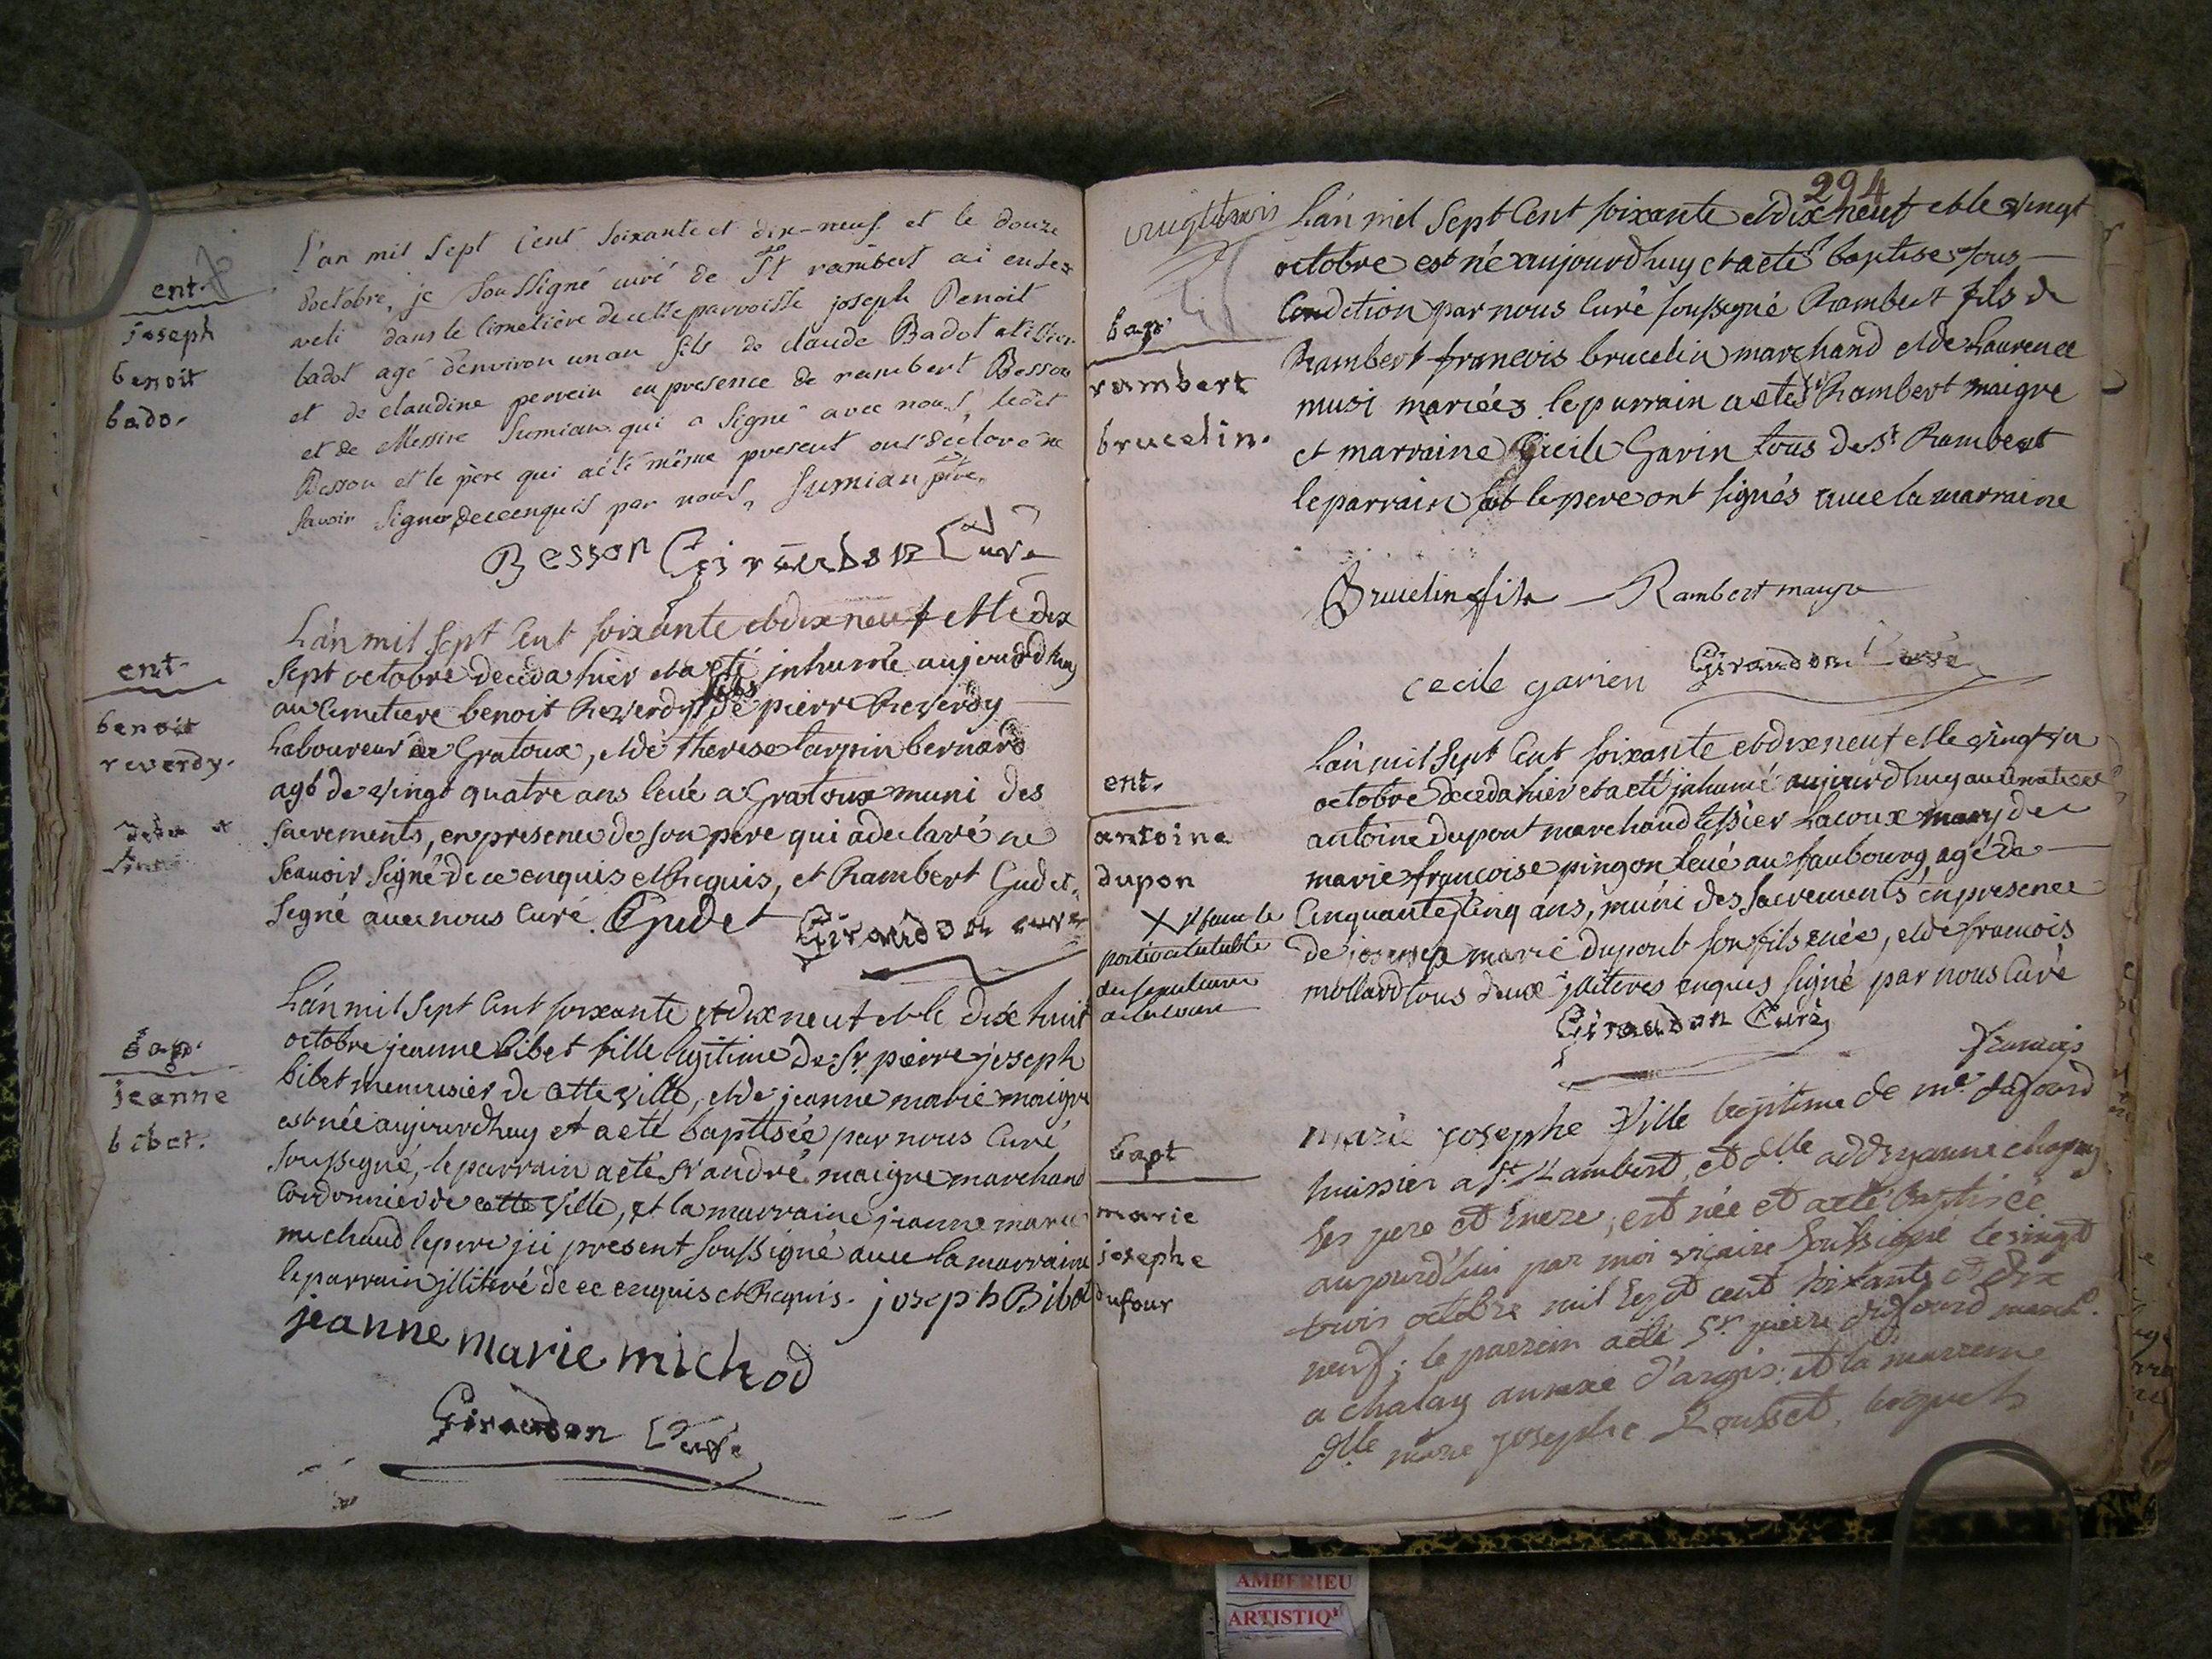 ent.
joseph
benoit
bado.
L'an mil Sept Cent Soixante et dix-neuf et le douze
doctobre, je Soussigné curé de St rambert ai enter
veli dans le Cimetière de cette parroisse joseph Benoit
badot agé d'environ un an fils de claude Badot
et de claudine perrein en presence de rambert Besson
et de Messire Sumian qui a Signé avec nous, ledit
Besson et le père qui a été même present ont déclaré ne
Savoir Signer de ce enquis par nous, Sumian ptre,
Besson Giraudon Curé
ent.
benoit
reverdy.
L'an mil Sept Cent soixante et dix neuf et le dix
Sept octobre deceda hier et a eté inhumé aujourdhuy
au Cimetiere benoit Reverdy fils de pierre Reverdy
Laboureur de Gratoux, et de therese Carrin bernard
agé de vingt quatre ans levé a Gratoux muni des
sacrements, en presence de son pere qui a declaré ne
Scavoir Signé de ce enquis et Requis, et Rambert Gudet
Signé avec nous Curé. Gudet Giraudon curé
bap.
jeanne
bibet.
L'an mil Sept Cent soixante et dix neuf et le dix huit
octobre jeanne bibet fille legitime de Sr. pierre joseph
bibet menuisier de Cette ville, et de jeanne marie maigre
est née aujourdhuy et a eté baptisée par nous Curé
soussigné, le parrain a eté Sr andré maigre marchand
Cordonnier de cette ville, et la marraine jeanne marie
michaud le pere ici present soussigné avec la marraine
le parrain jlliteré de ce enquis et Requis. joseph Bibet
jeanne marie michod
Giraudon Curé
294
vingt trois
bap.
rambert
brucelin.
L'an mil Sept Cent soixante et dix neuf et le vingt
octobre est né aujourdhuy et a eté baptise sous
Condition par nous Curé soussigné Rambert fils de
Rambert francois brucelin marchand et de Laurence
musi mariées le parrain a eté Sr Rambert maigre
et marraine Cicile Gavin tous de St Rambert
le parrain et le pere ont signés avec la marraine
Brucelin fils Rambert maigre
cecile garien Giraudon Curé
ent.
antoine
dupon
L'an mil Sept Cent soixante et dix neuf et le vingt un
octobre deceda hier et a eté inhumé aujourdhuy au Cimetiere
antoine dupont marchand tessier Lacoux mary de
marie francoise pingon levé au faubourg, agé de
Cinquante Cinq ans, muni des Sacrements en presence
de joseph marie dupont son fils ené, et de francois
mollard tous deux jlliteres enquis signé par nous Curé
Giraudon Curé
bapt
marie
josephe
dufour
francois
marie josephe fille legitime de me. dufourd
huissier a St. Rambert, et dlle addryanne chapuy
ses pere et mere, est née et a eté baptisée
aujourd'hui par moi vicaire soussigné le vingt
trois octobre mil sept cent soixante et dix
neuf; le parrein a eté Sr. pierre dufourd march.
a chalay annexe d'argis; et la marreine
dlle marie josephe Rousset, lesquels
AMBERIEU
ARTISTIQ